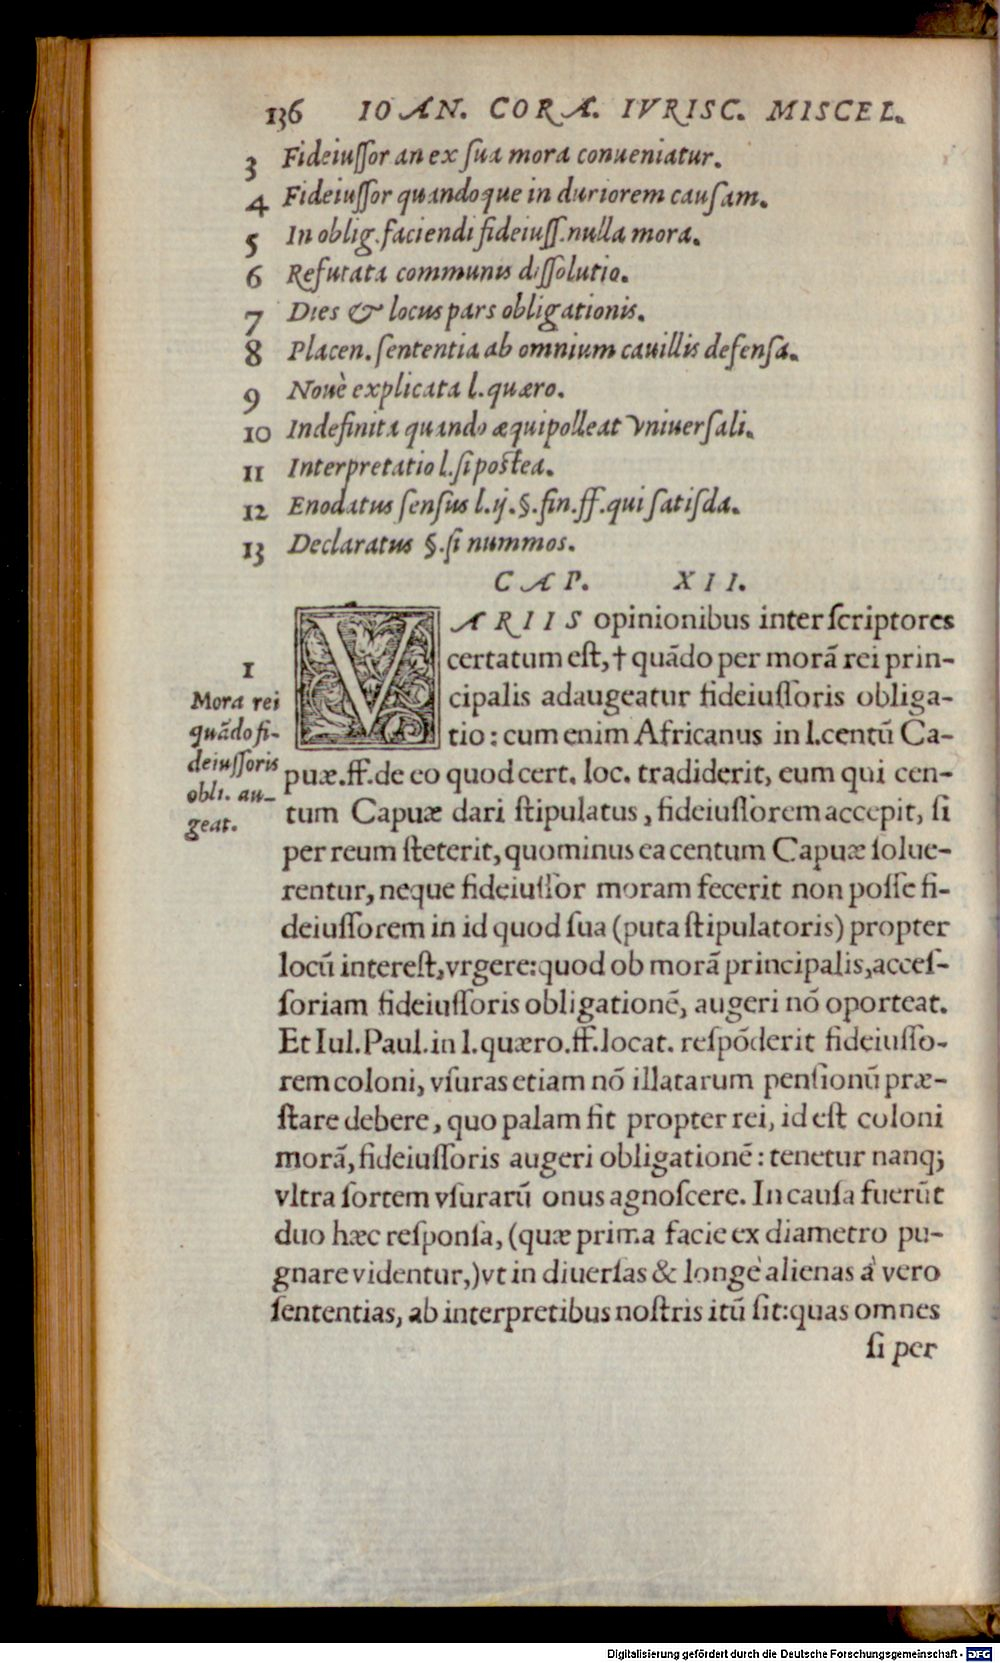 136 IOAN. CORA. IVRISC. MISCEL.
3 Fideiuſſor an ex ſua mora conueniatur.
4 Fideiuſſor quandoque in duriorem cauſam.
5 In oblig. faciendi fideiuſſ. nulla mora.
6 Refutata communis diſſolutio.
7 Dies & locus pars obligationis.
8 Placen. ſententia ab omnium cauillis defenſa.
9 Nouè explicata l. quæro.
10 Indefinita quando æquipolleat vniuerſali.
11 Interpretatio l. ſi poſtea.
12 Enodatus ſenſus l. ij. §. fin. ff. qui ſatiſda.
13 Declaratus §. ſi nummos.
CAP. XII.
VARIIS opinionibus inter ſcriptores
certatum eſt, † quãdo per morã rei prin-
cipalis adaugeatur fideiuſſoris obliga-
tio: cum enim Africanus in l. centũ Ca-
puæ. ff. de eo quod cert. loc. tradiderit, eum qui cen-
tum Capuæ dari ſtipulatus, fideiuſſorem accepit, ſi
per reum ſteterit, quominus ea centum Capuæ ſolue-
rentur, neque fideiuſſor moram fecerit non poſſe fi-
deiuſſorem in id quod ſua (puta ſtipulatoris) propter
locũ intereſt, vrgere: quod ob morã principalis, acceſ-
ſoriam fideiuſſoris obligationẽ, augeri nõ oporteat.
Et Iul. Paul. in l. quæro. ff. locat. reſpõderit fideiuſſo-
rem coloni, vſuras etiam nõ illatarum penſionũ præ-
ſtare debere, quo palam fit propter rei, id eſt coloni
morã, fideiuſſoris augeri obligationẽ: tenetur nanq;
vltra ſortem vſurarũ onus agnoſcere. In cauſa fuerũt
duo hæc reſponſa, (quæ prima facie ex diametro pu-
gnare videntur,) vt in diuerſas & longè alienas à vero
ſententias, ab interpretibus noſtris itũ ſit: quas omnes
ſi per
1
Mora rei
quãdo fi-
deiuſſoris
obli. au-
geat.
Digitalisierung gefördert durch die Deutsche Forschungsgemeinschaft - DFG